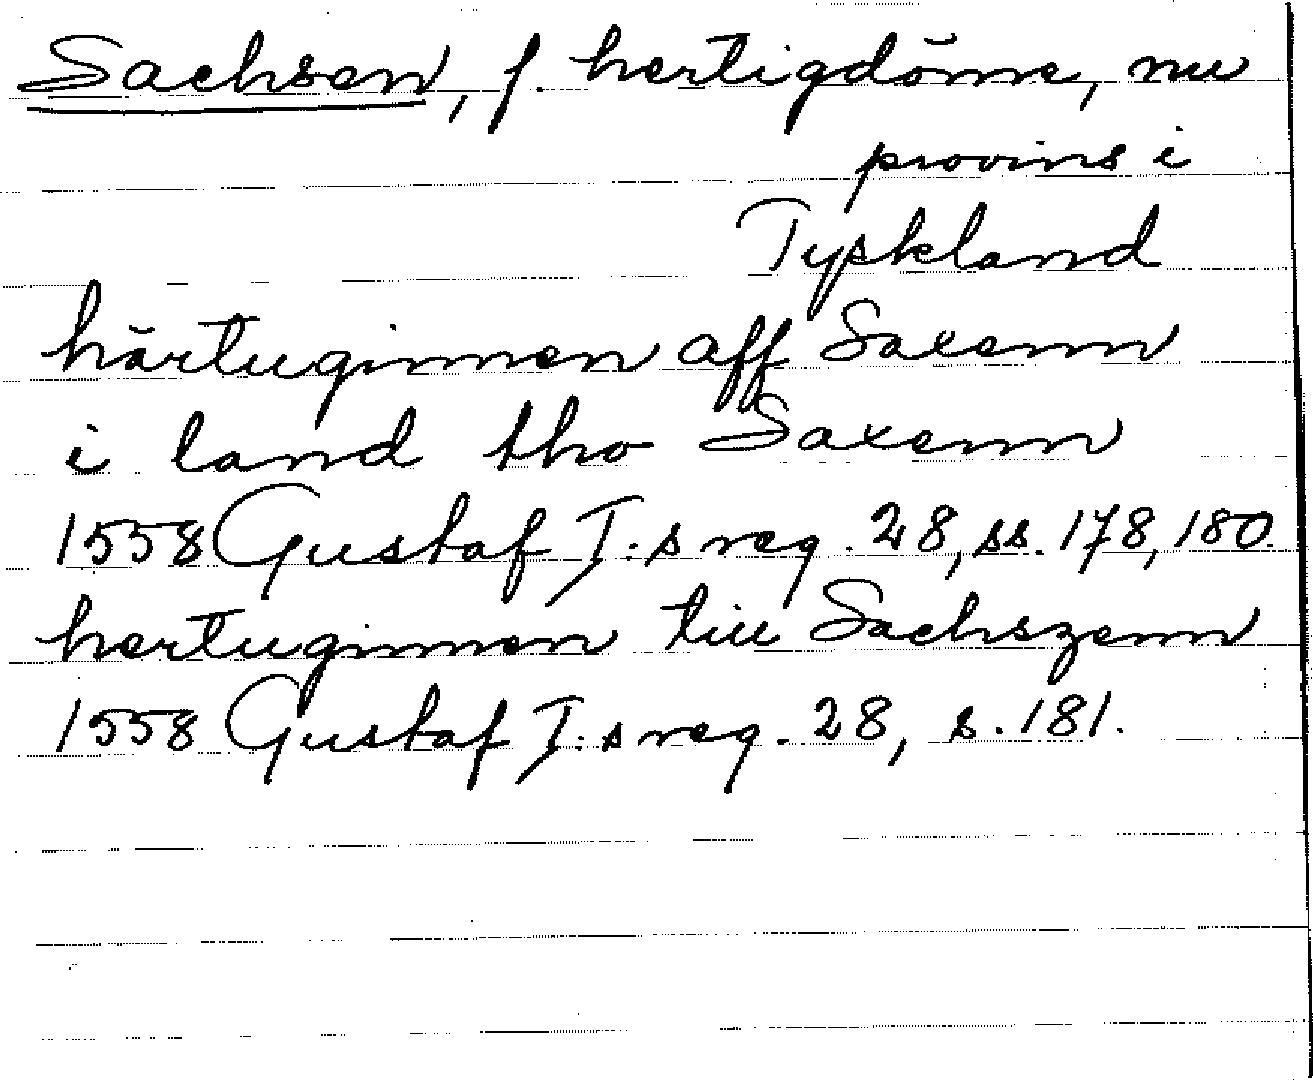 Sachsen, f. hertigdöme, nu
provins i
Tyskland
härtuginnen aff Saxenn
i land tho Saxenn
1558 Gustaf I:s reg. 28, ss. 178, 180.
hertuginnen till Sachszenn
1558 Gustaf I:s reg. 28, s. 181.